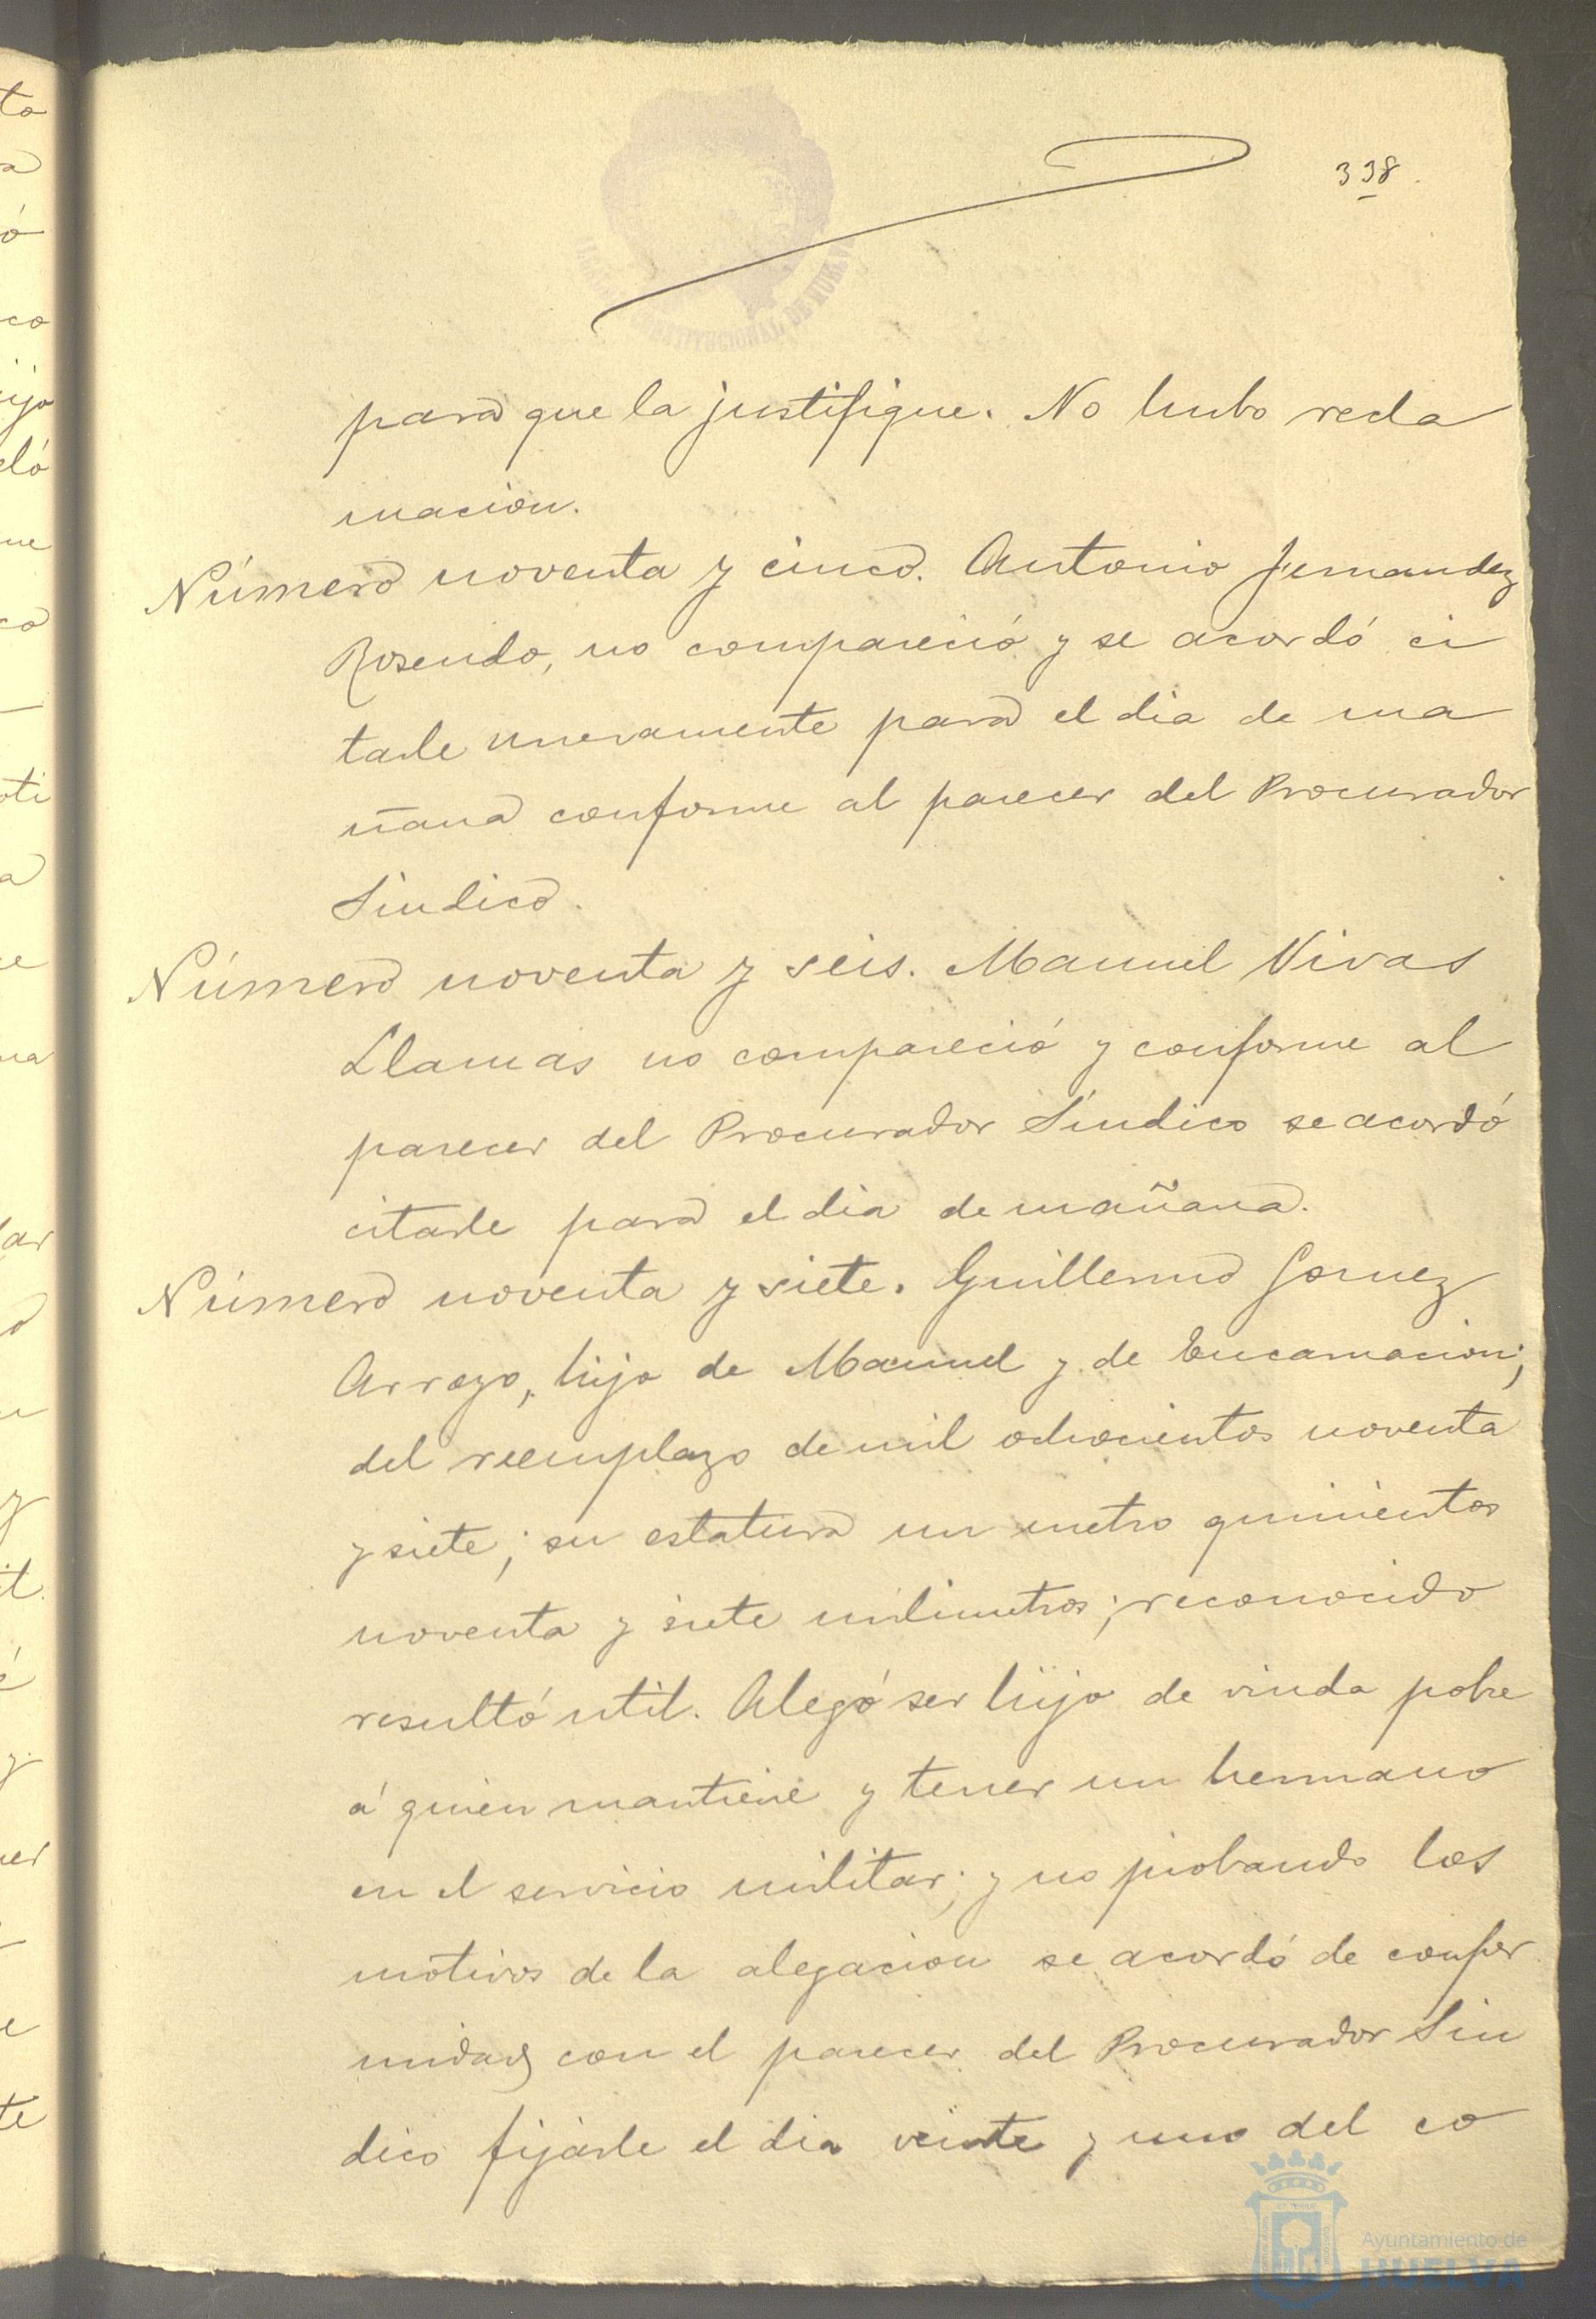 338
para que la justifique. No hubo recla
macion.
Número noventa y cinco. Antonio Fernandez
Rosendo, no compareció y se acordó ci
tarle nuevamente para el dia de ma
ñana conforme al parecer del Procurador
Sindico.
Número noventa y seis. Manuel Vivas
Llamas no compareció y conforme al
parecer del Procurador Síndico se acordó
citarle para el dia de mañana.
Número noventa y siete. Guillermo Gomez
Arroyo, hijo de Manuel y de Encarnacion;
del reemplazo de mil ochocientos noventa
y siete; su estatura un metro quinientos
noventa y siete milimetros; reconocido
resultó util. Alegó ser hijo de viuda pobre
á quien mantiene y tener un hermano
en el servicio militar; y no probando los
motivos de la alegacion se acordó de confor
midad con el parecer del Procurador Sin
dico fijarle el dia veinte y uno del co
Ayuntamiento de
HUELVA